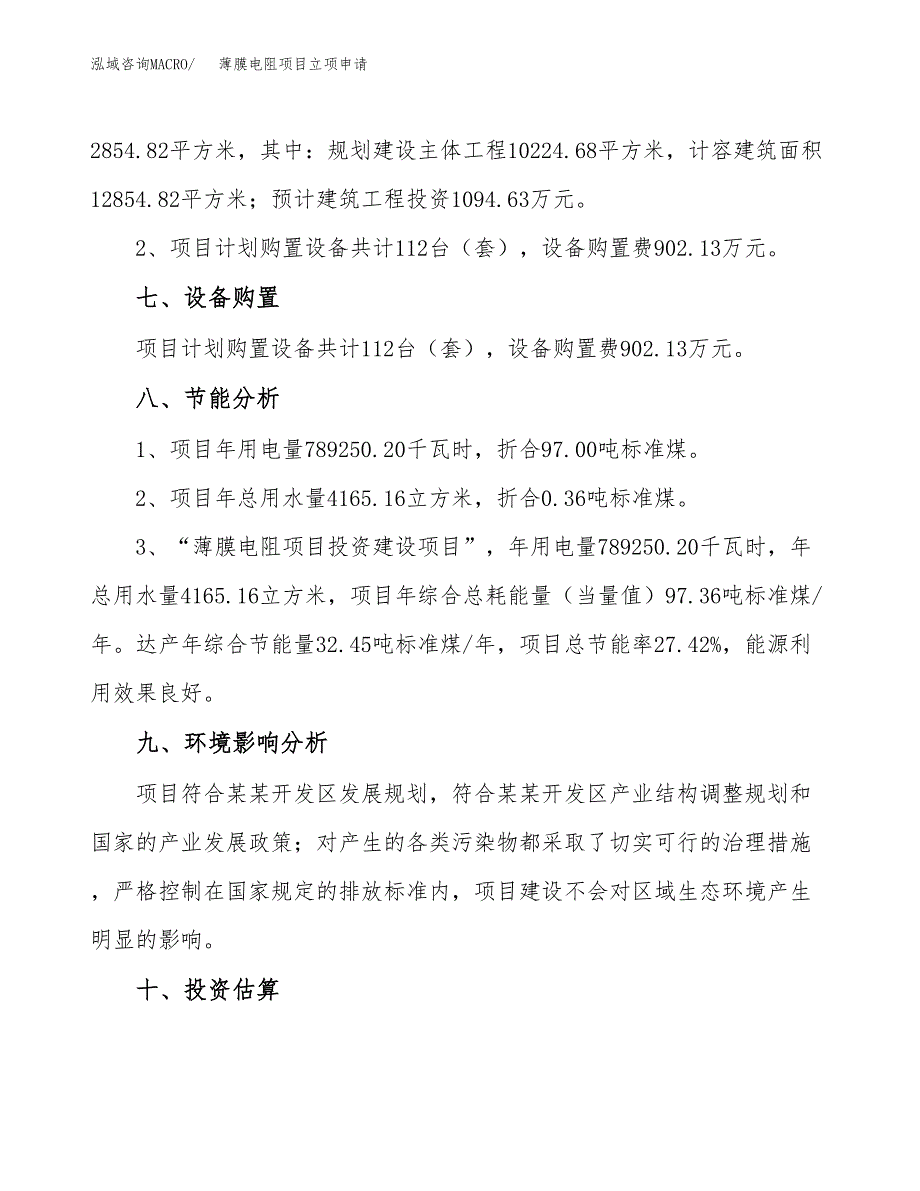 泓域咨询MACRO/ 薄膜电阻项目立项申请
2854.82平方米，其中：规划建设主体工程10224.68平方米，计容建筑面积
12854.82平方米；预计建筑工程投资1094.63万元。
2、项目计划购置设备共计112台（套），设备购置费902.13万元。
七、设备购置
项目计划购置设备共计112台（套），设备购置费902.13万元。
八、节能分析
1、项目年用电量789250.20千瓦时，折合97.00吨标准煤。
2、项目年总用水量4165.16立方米，折合0.36吨标准煤。
3、“薄膜电阻项目投资建设项目”，年用电量789250.20千瓦时，年
总用水量4165.16立方米，项目年综合总耗能量（当量值）97.36吨标准煤/
年。达产年综合节能量32.45吨标准煤/年，项目总节能率27.42%，能源利
用效果良好。
九、环境影响分析
项目符合某某开发区发展规划，符合某某开发区产业结构调整规划和
国家的产业发展政策；对产生的各类污染物都采取了切实可行的治理措施
，严格控制在国家规定的排放标准内，项目建设不会对区域生态环境产生
明显的影响。
十、投资估算